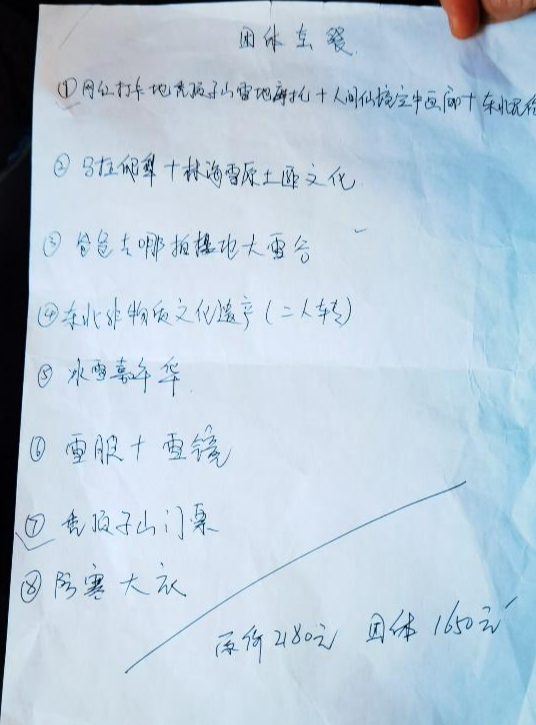 团体套餐
①网红打卡地秃顶子山雪地摩托+人间仙境空中画廊+东北民俗
②马拉爬犁+林海雪原土匪文化
③爸爸去哪拍摄地大雪谷
④东北非物质文化遗产(二人转)
⑤冰雪嘉年华
⑥雪服+雪镜
⑦秃顶子山门票
⑧防寒大衣
原价2180元 团体1650元